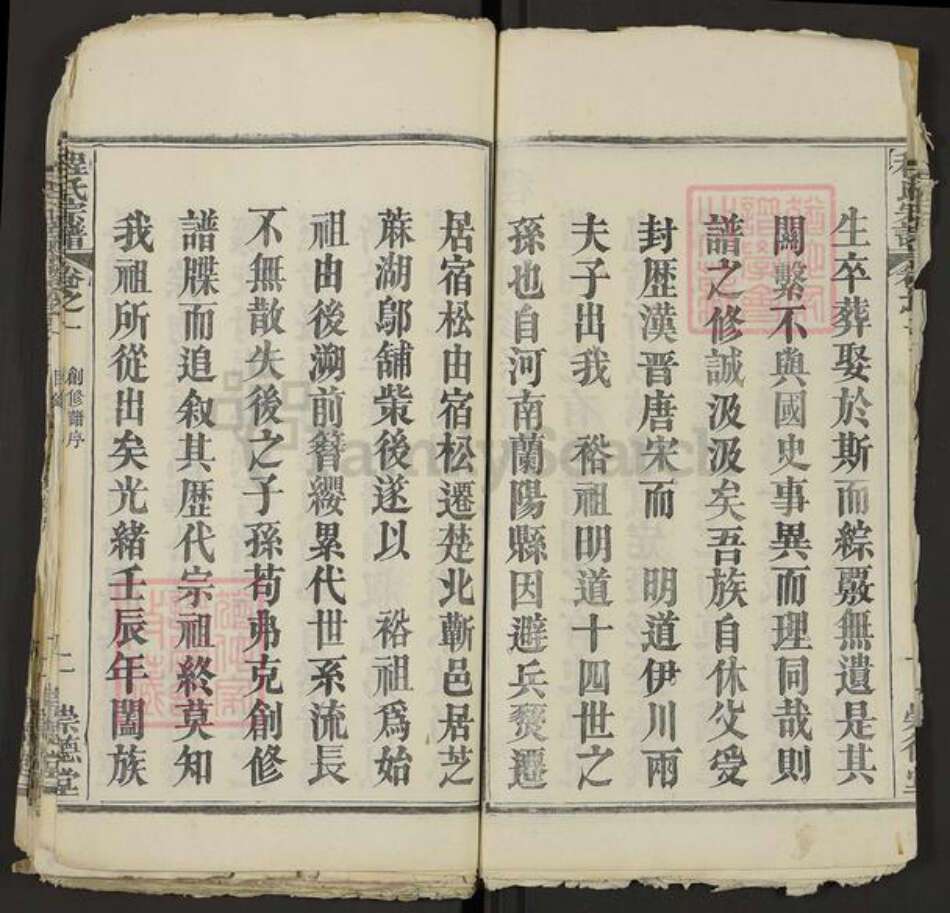 生卒葬娶於斯而綜覈無遺是其
關繫不與國史事異而理同哉則
譜之修誠汲汲矣吾族自休父受
封歷漢晉唐宋而　明道伊川兩
夫子出我　裕祖明道十四世之
孫也自河南蘭陽縣因避兵燹遷
居宿松由宿松遷楚北蘄邑居芝
蔴湖鄔舖柴後遂以　裕祖爲始
祖由後溯前簪纓累代世系流長
不無散失後之子孫苟弗克創修
譜牒而追叙其歷代宗祖終莫知
我祖所從出矣光緒壬辰年闔族
程氏宗譜 卷之一 創修譜序 二 崇德堂
FamilySearch